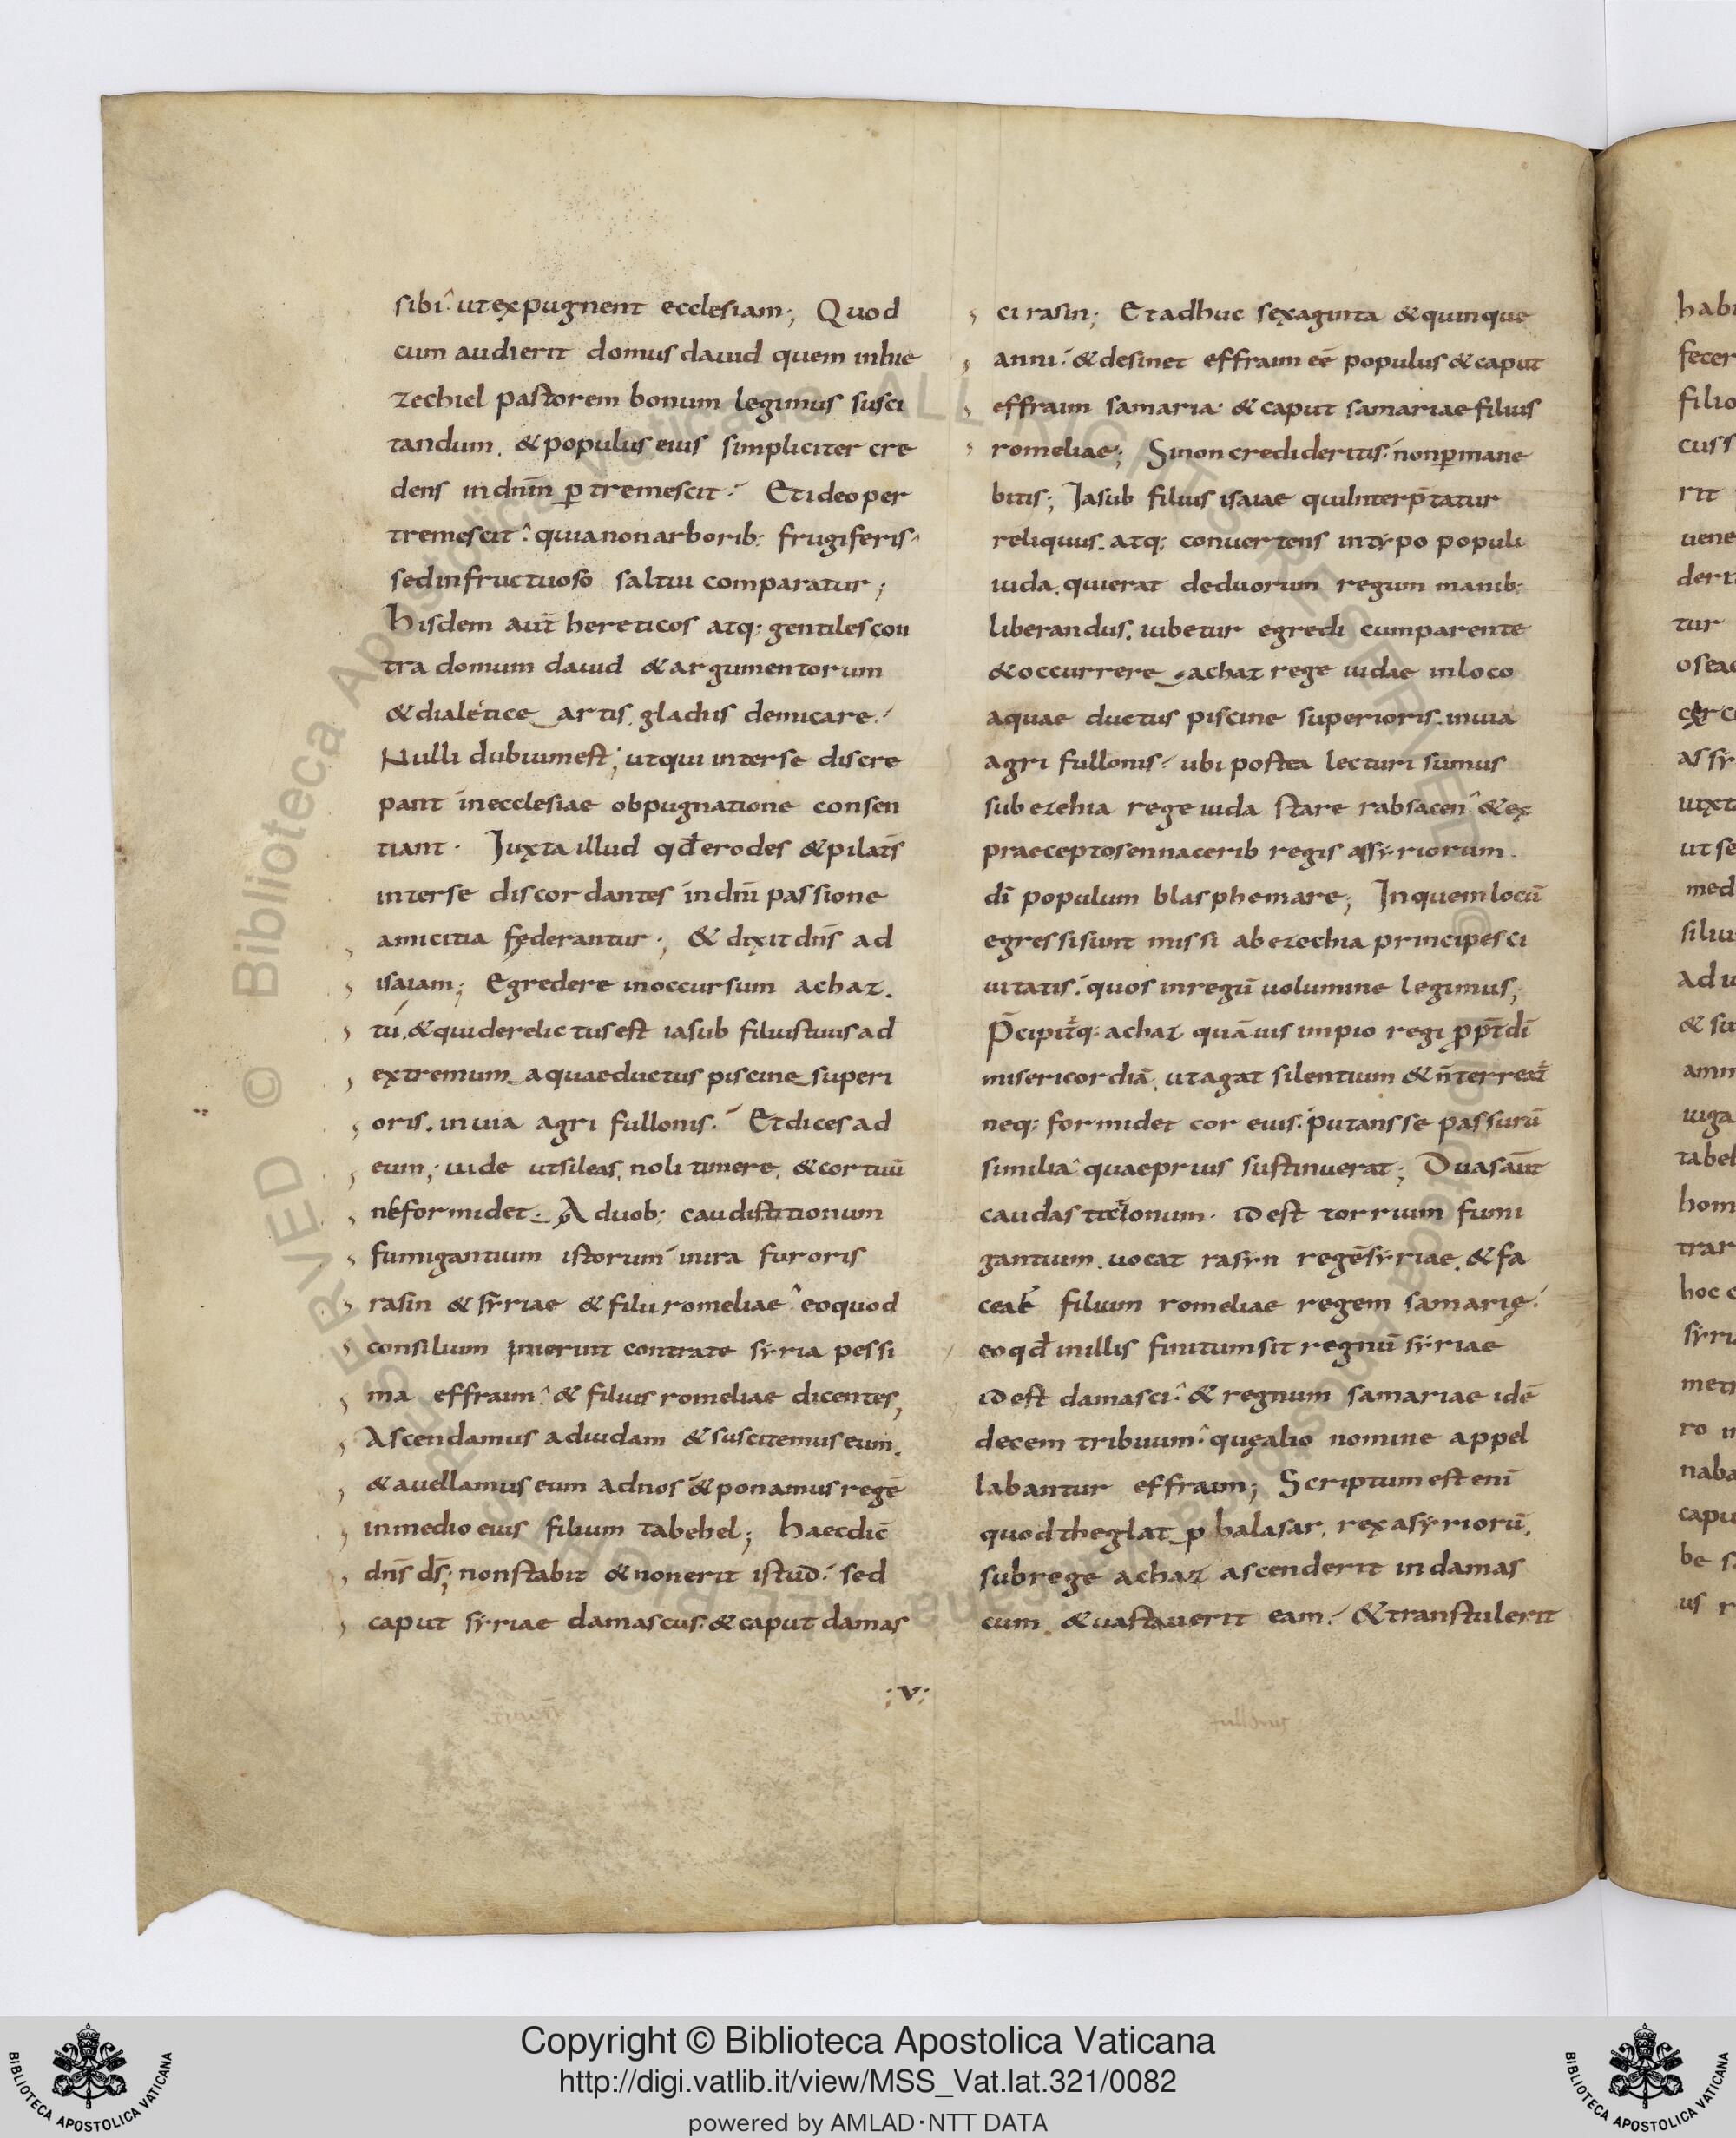 sibi. ut expugnent ecclesiam; Quod
cum audierit domus dauid quem in hie
zechiel pastorem bonum legimus susci
tandum. & populus eius simpliciter cre
dens in dnm̄ ꝑ tremescit. Et ideo per
tremescit. quia non arborib: frugiferis
sed infructuoso saltui comparatur;
hisdem aut̄ hereticos atq: gentiles con
tra domum dauid & argumentorum
& dialetice artis. gladiis demicare.
Nulli dubium est; ut qui inter se discre
pant in ecclesiae obpugnatione consen
tiant. Juxta illud qđ erodes & pilatꝰ
inter se discordantes in dn̄i passione
amicitia fęderantur; & dixit dn̄s ad
isaiam; Egredere in occursum achaz.
tu. & qui derelictus est iasub filius tuus ad
extremum aquaeductus piscine superi
oris. in uia agri fullonis. Et dices ad
eum; uide ut sileas. noli timere. & cor tuū
ne formidet. A duob: caudis titionum
fumigantium istorum in ira furoris
rasin & syriae & filii romeliae. eo quod
consilium inierint contra te syria pessi
ma effraim & filius romeliae dicentes,
Ascendamus ad iudam & suscitemus eum.
& auellamus eum ad nos & ponamus regē
in medio eius filium tabehel; haec dic̄
dn̄s ds̄; non stabit & non erit istud. sed
caput syriae damascus. & caput damas
ci rasin; Et adhuc sexaginta & quinque
anni. & desinet effraim eē populus & caput
effraim samaria. & caput samariae filius
romeliae; Si non credideritis. non ꝑmane
bitis; Jasub filius isaiae qui interp̄tatur
reliquus. atq: conuertens in typo populi
iuda. qui erat de duorum regum manib:
liberandus. iubetur egredi cum parente
& occurrere achaz rege iudae in loco
aquae ductus piscine superioris. in uia
agri fullonis. ubi postea lecturi sumus
sub ezehia rege iuda stare rabsacen & ex
praecepto sennacerib regis assyriorum.
dī populum blasphemare; In quem locū
egressi sunt missi ab ezechia principes ci
uitatis. quos in regū uolumine legimus;
P̄cipit̄q: achaz quāuis impio regi ꝓpt̄ dī
misericordiā. ut agat silentium & n̄ terreat̄
neq: formidet cor eius. putans se passurū
similia quae prius sustinuerat; Duas aūt
caudas titionum. id est torrium fumi
gantium. uocat rasyn regē syriae. & fa
ceae filium romeliae regem samarię.
eo qđ in illis finitum sit regnū syriae
id est damasci. & regnum samariae idē
decem tribuum. quę alio nomine appel
labantur effraim; Scriptum est enī
quod theglat phalasar. rex asyriorū.
sub rege achaz ascenderit in damas
cum. & uastauerit eam. & transtulerit
:v:
habi
fecer
filio
cuss
rit
uene
dert
tur
oseae
assy
iuxta
ut se
med
siluu
ad u
& su
amn
iuga
tabel
hom
trar
hoc
syri
meti
ro
naba
capu
be s
us r
Copyright © Biblioteca Apostolica Vaticana
http://digi.vatlib.it/view/MSS_Vat.lat.321/0082
powered by AMLAD·NTT DATA
BIBLIOTECA APOSTOLICA VATICANA
BIBLIOTECA APOSTOLICA VATICANA